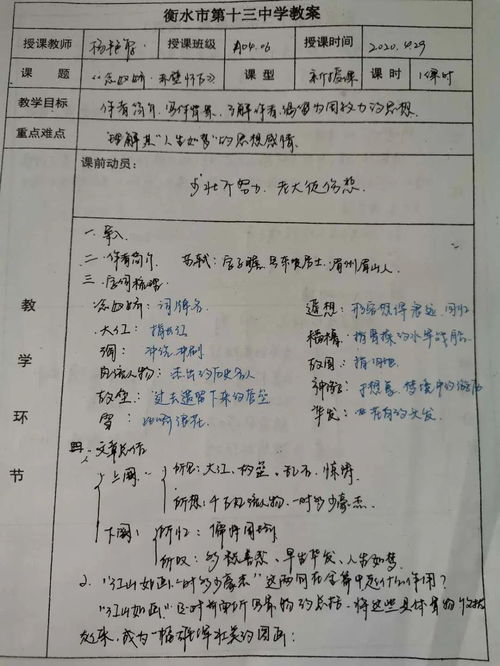 衡水市第十三中学教案
授课教师 授课班级 授课时间 2020.4.29
课题 《念奴娇·赤壁怀古》 课型 新授课 课时 1课时
教学目标 作者简介,写作背景,了解作者 的思想.
重点难点 理解其"人生如梦"的思想感情.
课前动员:
少壮不努力,老大徒伤悲.
教学环节
一.导入
二.作者简介 苏轼:字子瞻,号东坡居士,眉州眉山人.
三.字词梳理
念奴娇:词牌名 遥想:
大江:指长江 樯橹:指曹操的水军战船
冲洗,冲刷 故国:指旧地
风流人物:杰出的历史名人 神游:于想象、
故垒:过去遗留下来的营垒 华发:
雪:
四.文章
上阕 所见:大江、故垒、乱石、惊涛
所想:千古风流人物,一时多少豪杰.
下阕:
所叹:多愁善感、早生华发、人生如梦
2."江山如画,一时多少豪杰"这两句在全篇中起什么作用?
"江山如画"是对前面所写景物的总结,将这些具体景物
起来,成为一幅雄浑壮美的图画;